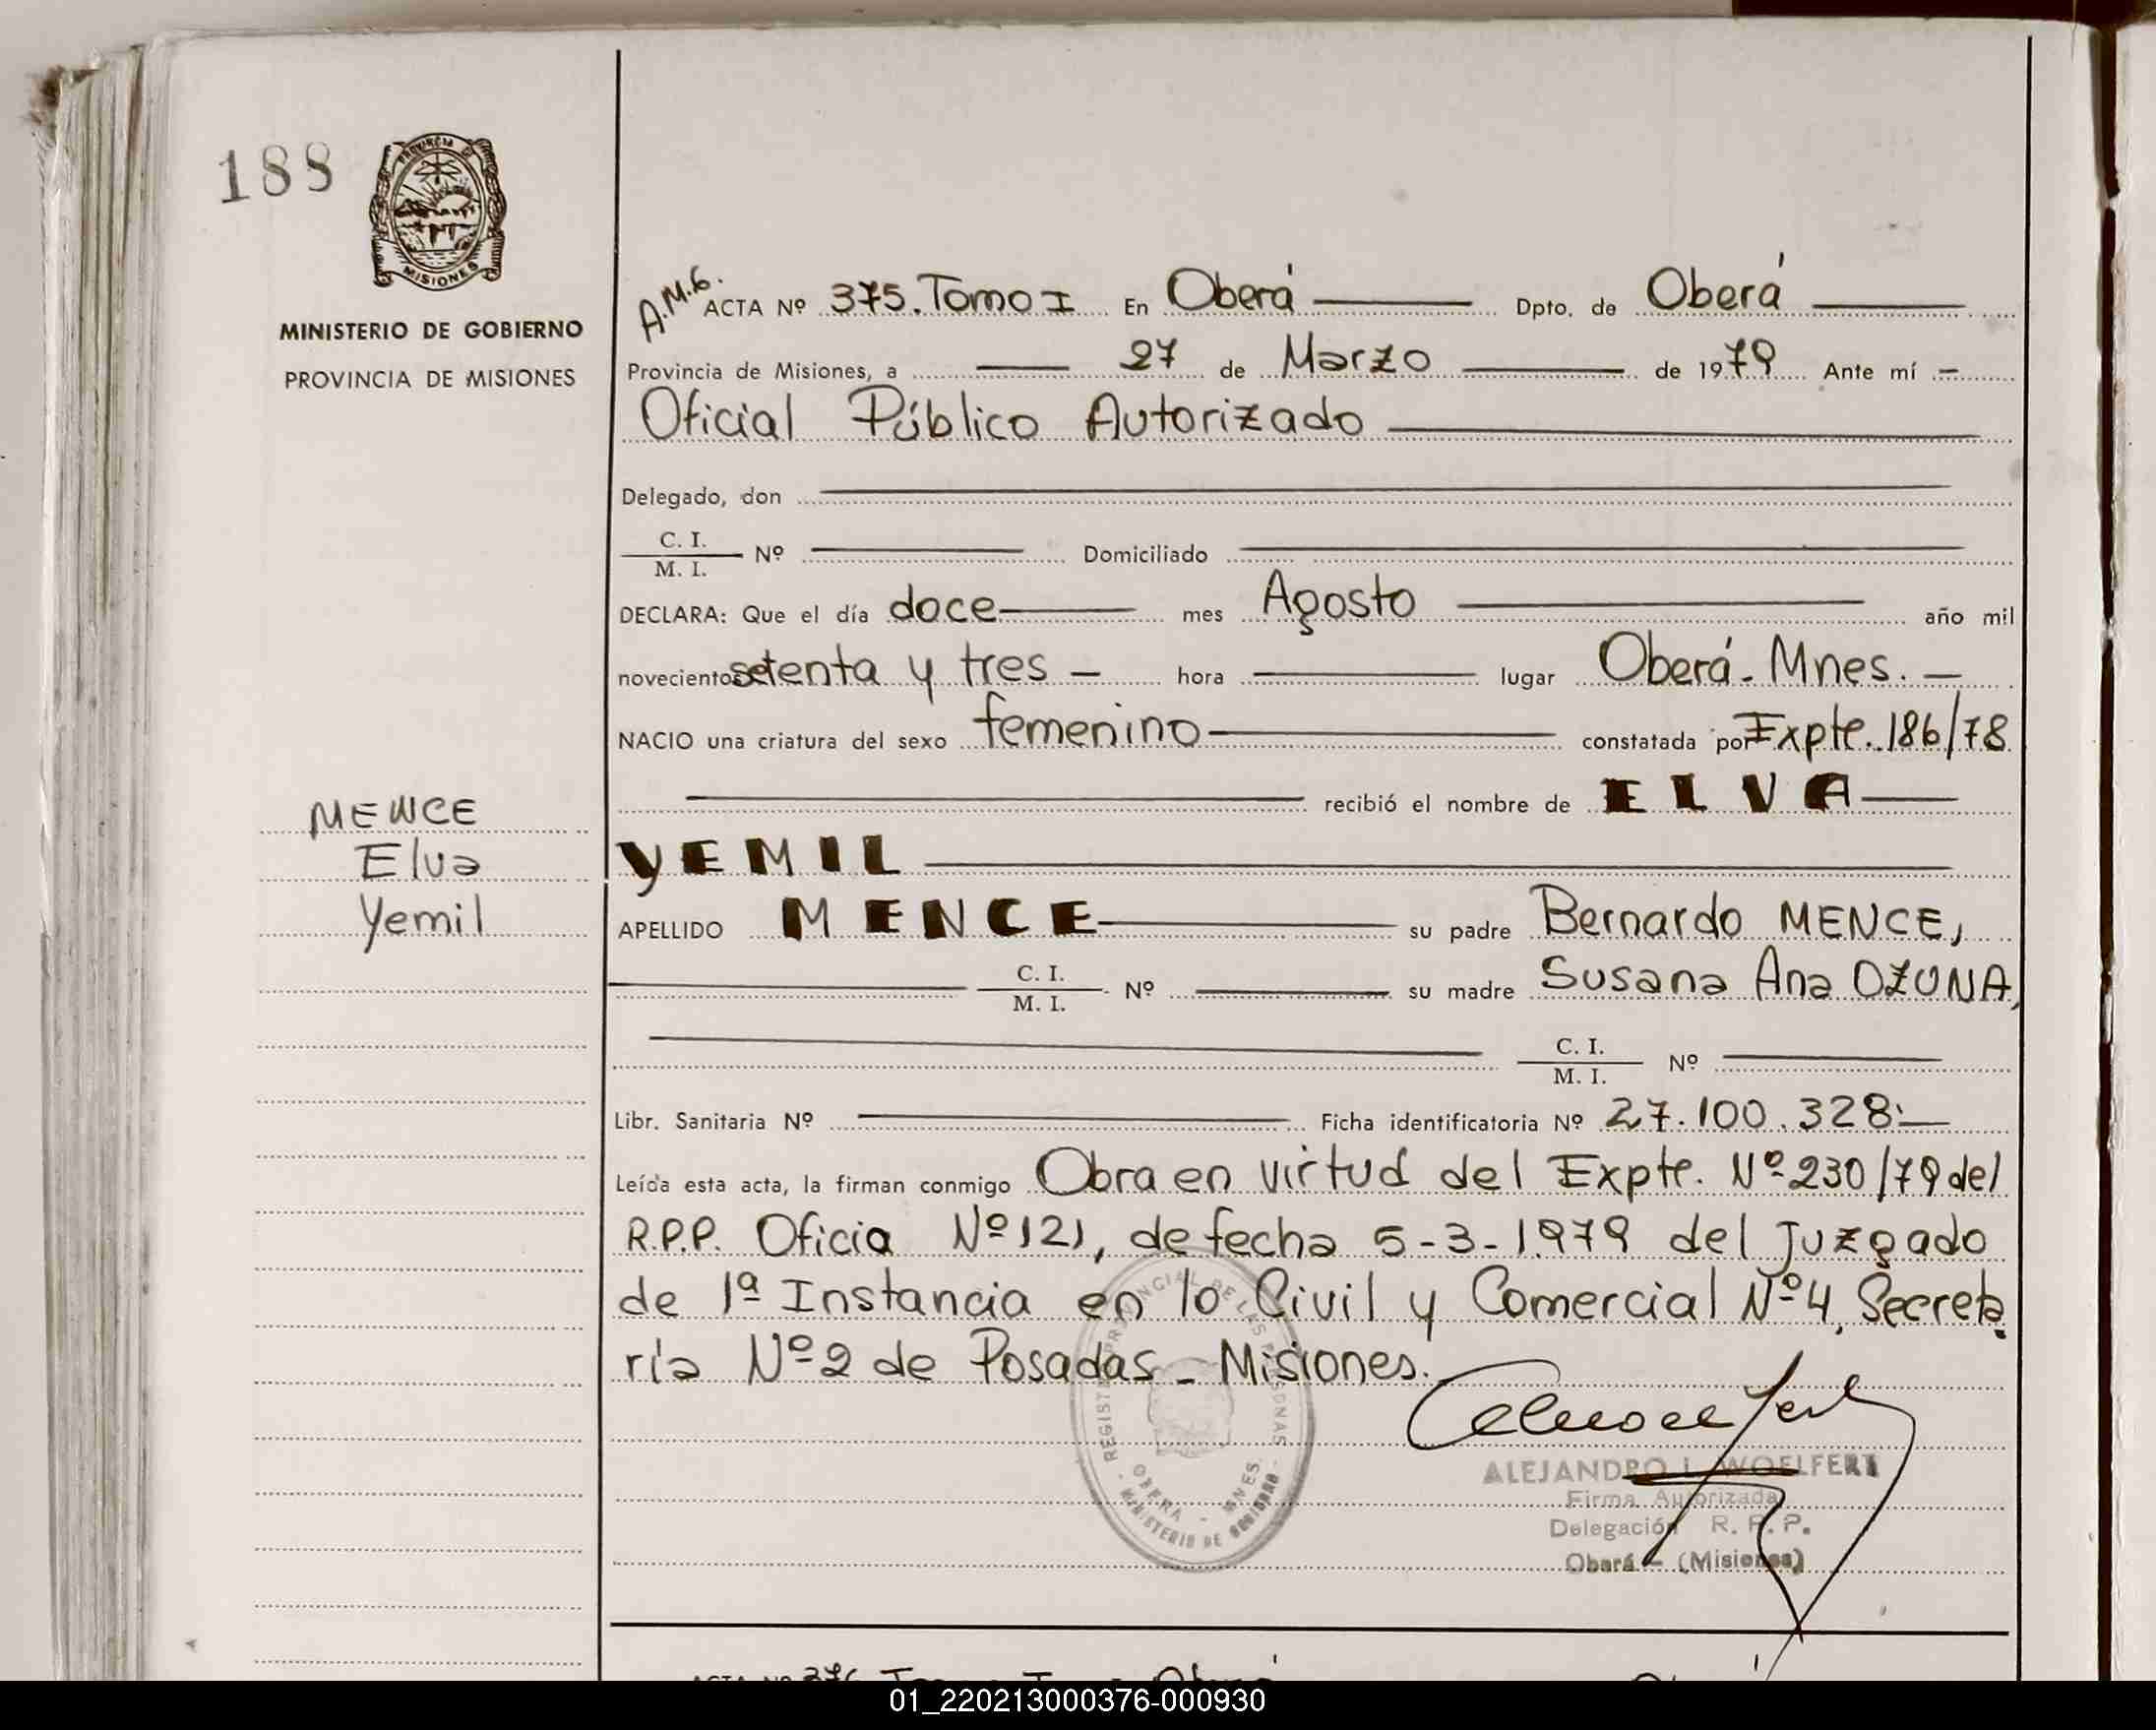 188
PROVINCIA DE
MISIONES
MINISTERIO DE GOBIERNO
PROVINCIA DE MISIONES
MENCE
Elva
Yemil
A.M.G. ACTA Nº 375. Tomo I En Oberá Dpto. de Oberá
Provincia de Misiones, a 27 de Marzo de 1979 Ante mí
Oficial Público Autorizado
Delegado, don
C. I.
M. I. Nº Domiciliado
DECLARA: Que el día doce mes Agosto año mil
novecientos setenta y tres hora lugar Oberá. Mnes.
NACIO una criatura del sexo femenino constatada por Expte. 186/78
recibió el nombre de ELVA
YEMIL
APELLIDO MENCE su padre Bernardo MENCE,
C. I.
M. I. Nº su madre Susana Ana OZUNA,
C. I.
M. I. Nº
Libr. Sanitaria Nº Ficha identificatoria Nº 27.100.328.
Leída esta acta, la firman conmigo Obra en virtud del Expte. Nº 230/79 del
R.P.P. Oficia Nº 121, de fecha 5-3-1979 del Juzgado
de 1ª Instancia en lo Civil y Comercial Nº 4, Secreta
ría Nº 2 de Posadas - Misiones.
REGISTRO PROVINCIAL DE LAS PERSONAS
OBERA - MNES.
MINISTERIO DE GOBIERNO
ALEJANDRO L. WOELFERT
Firma Autorizada
Delegación R. P. P.
Oberá - (Misiones)
ACTA Nº 376 Tomo I Oberá
01_220213000376-000930